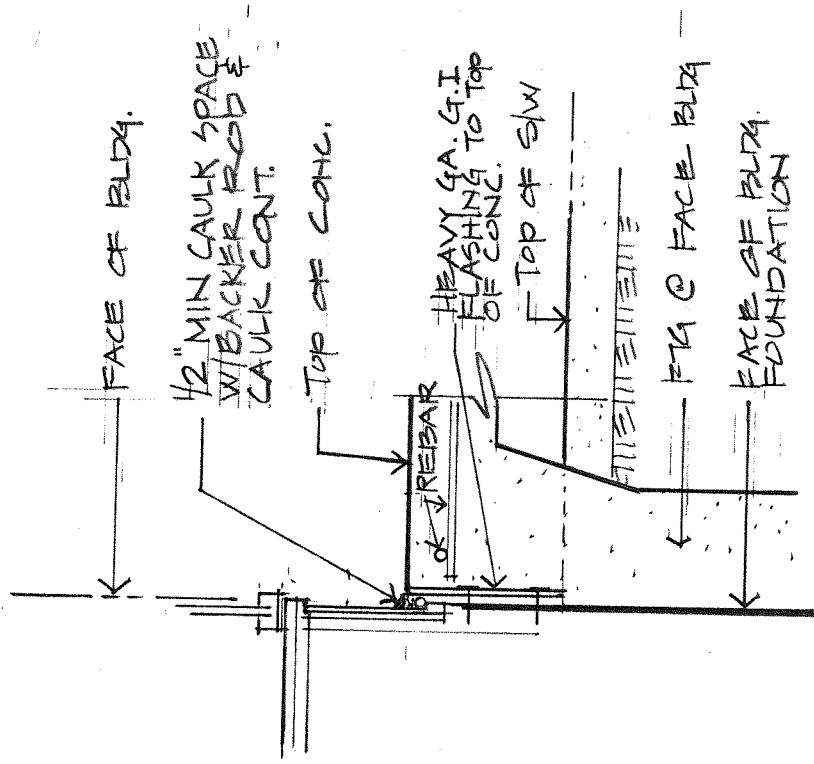 FACE OF BLDG.
1/2" MIN CAULK SPACE
W/BACKER ROD &
CAULK CONT.
TOP OF CONC.
REBAR
HEAVY GA. G.I
FLASHING TO TOP
OF CONC.
TOP OF S/W
FTG @ FACE BLDG
FACE OF BLDG.
FOUNDATION